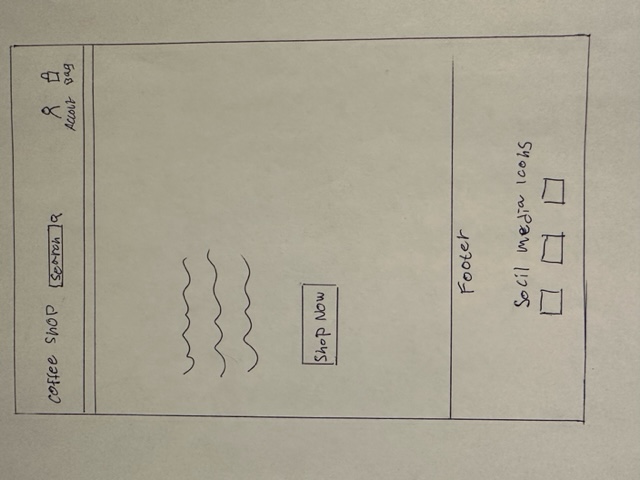 coffee shop search
Accout Bag
Shop Now
Footer
Socil media icons